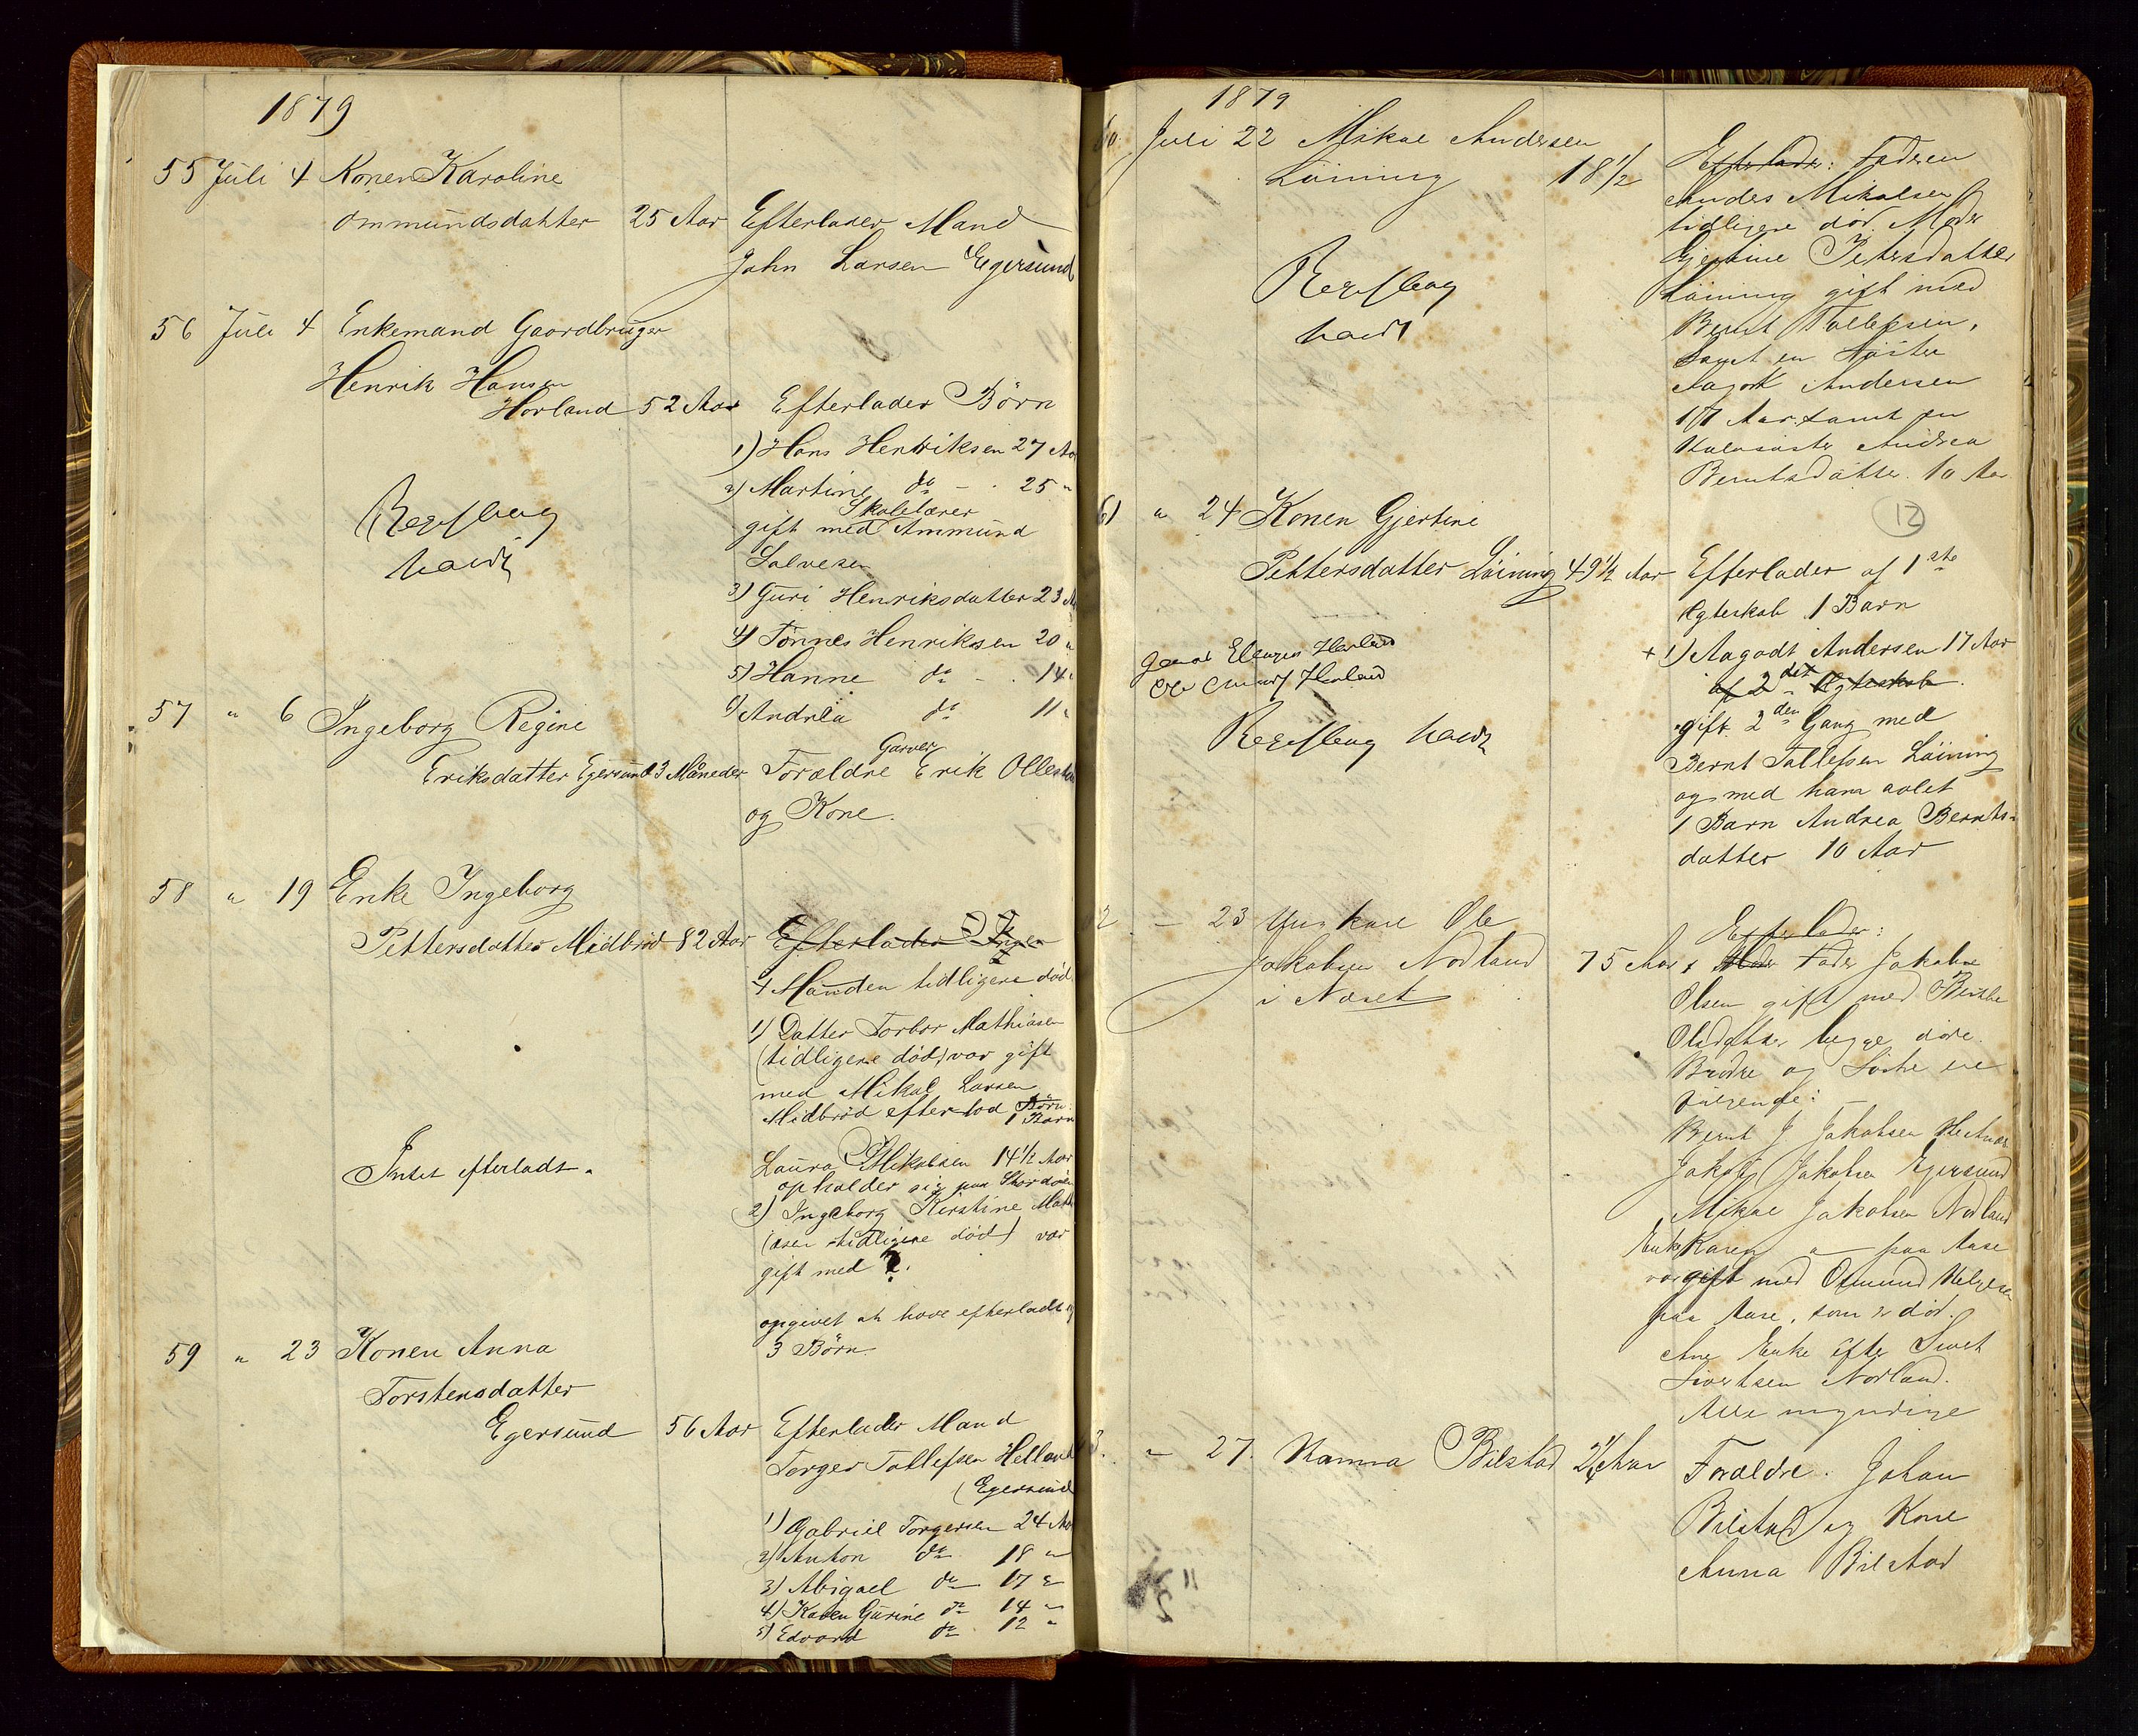 1879
55 Juli 4 Konen Karoline
Ommundsdatter 25 Aar Efterlader Mand
John Larsen Egersund
56 Juli 4 Enkemand Gaardbruger
Henrik Hansen
Horland 52 Aar Efterlader Börn
1) Hans Henriksen 27 Aa
2) Martine do - . 25 "
Skolelærer
gift med Ammund
Salvesen
3) Guri Henriksdatter 23 A
4) Tönnes Henriksen 20 "
5) Hanne do - . 14 "
6) Andrea do 11 "
57 " 6 Ingeborg Regine
Garver
Eriksdatter Egersund 3 Måneder Forældre Erik Ollest
og Kone.
58 " 19 Enke Ingeborg
Pettersdatter Midbröd 82 Aar Efterlader Ingen
Manden tidligere död
1) Datter Torbor Mathiasen
(tidligere död) var gift
med Mikal Larsen
Midbröd efterlod Börn
1 Barn
Laura Mikalsen 14½ Aar
Intet efterladt.
opholder sig paa
2) Ingeborg Kirstine Math
iasen tidligere död) var
gift med ?.
opgivet at have efterladt sig
3 Börn.
59 " 23 Konen Anna
Torstensdatter
Egersund 56 Aar Efterlader Mand
Torger Tollefsen Helland
(Egersund
1) Gabriel Torgersen 24 Aa
2) Anton do 18 "
3) Abigael do 17 "
4) Karen Gurine do 14 "
5) Edvard do 12 "
1879
60. Juli 22 Mikal Andersen
Löining 18½ Efterlader: Faderen
Andes Mikalsen
tidligere död. Moder
Gjertine Petersdatter
Löining gift med
Bernt Tollefsen,
samt en Söster
Aagodt Andersen
17 Aar samt en
Halvsöster Andrea
Berntsdatter. 10 Aar
12
61 " 24 Konen Gjertine
Pettersdatter Löining 49½ Aar Efterlader af 1ste
Egteskab 1 Barn
+ 1) Aagodt Andersen 17 Aar
af 2det Egteskab.
gift 2den Gang med
Bernt Tollefsen Löining
og med ham avlet
1 Barn Andrea Bernts-
datter 10 Aar
2 - 23 Ungkarl Ole
Jakobsen Nodland
i Næset
75 Aar Efterlader:
Fader Jakob
Olsen gift med Berthe
Olsdatter begge döde.
Brödre og Söstre ere
fölgende:
Bernt J. Jakobsen
Jakob Jakobsen Egersund
Mikal Jakobsen Nodland
Enke Karen " paa Aase
var gift med Osmund Helgesen
paa Aase, som er död.
Ane Enke efter Sivert
Sivertsen Nodland.
Alle myndige
3. " 27. Hanna Bilstad 2¼ Aar Forældre. Johan
Bilstad og Kone
Anna Bilstad